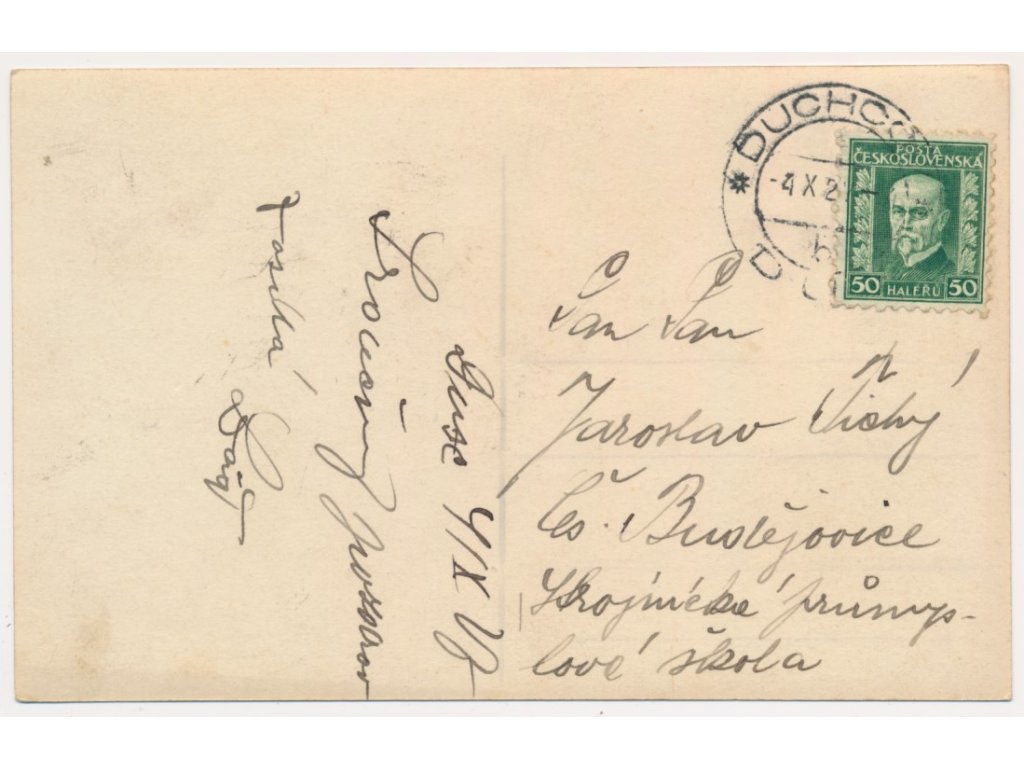 DUCHCO
-4 X 2
POŠTA
ČESKOSLOVENSKÁ
50 HALÉŘŮ 50
Pan Pan
Jaroslav Tichý
Čs. Budějovice
Strojnické průmys-
lové škola
4/X
Srdečný pozdrav